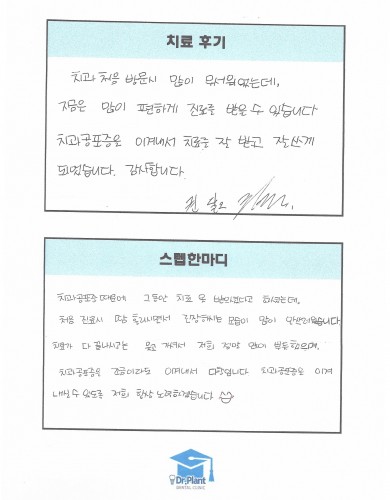 치료 후기
치과 처음 방문시 많이 무서웠었는데,
지금은 많이 편하게 진료를 받을 수 있습니다
치과공포증을 이겨내서 치료를 잘 받고 잘쓰게
되었습니다. 감사합니다.
스탭한마디
치과공포증 때문에 그동안 치료 못 받으셨다고 하셨는데,
처음 진료시 땀 흘리시면서 긴장하시는 모습이 많이 안쓰러웠습니다
치료가 다 끝나시고는 웃고 가셔서 저희 정말
치과공포증을 조금이라도 이겨내서 다행입니다 치과공포증은 이겨
내실 수 있도록 저희 항상 노력하겠습니다
Dr.Plant
DENTAL CLINIC